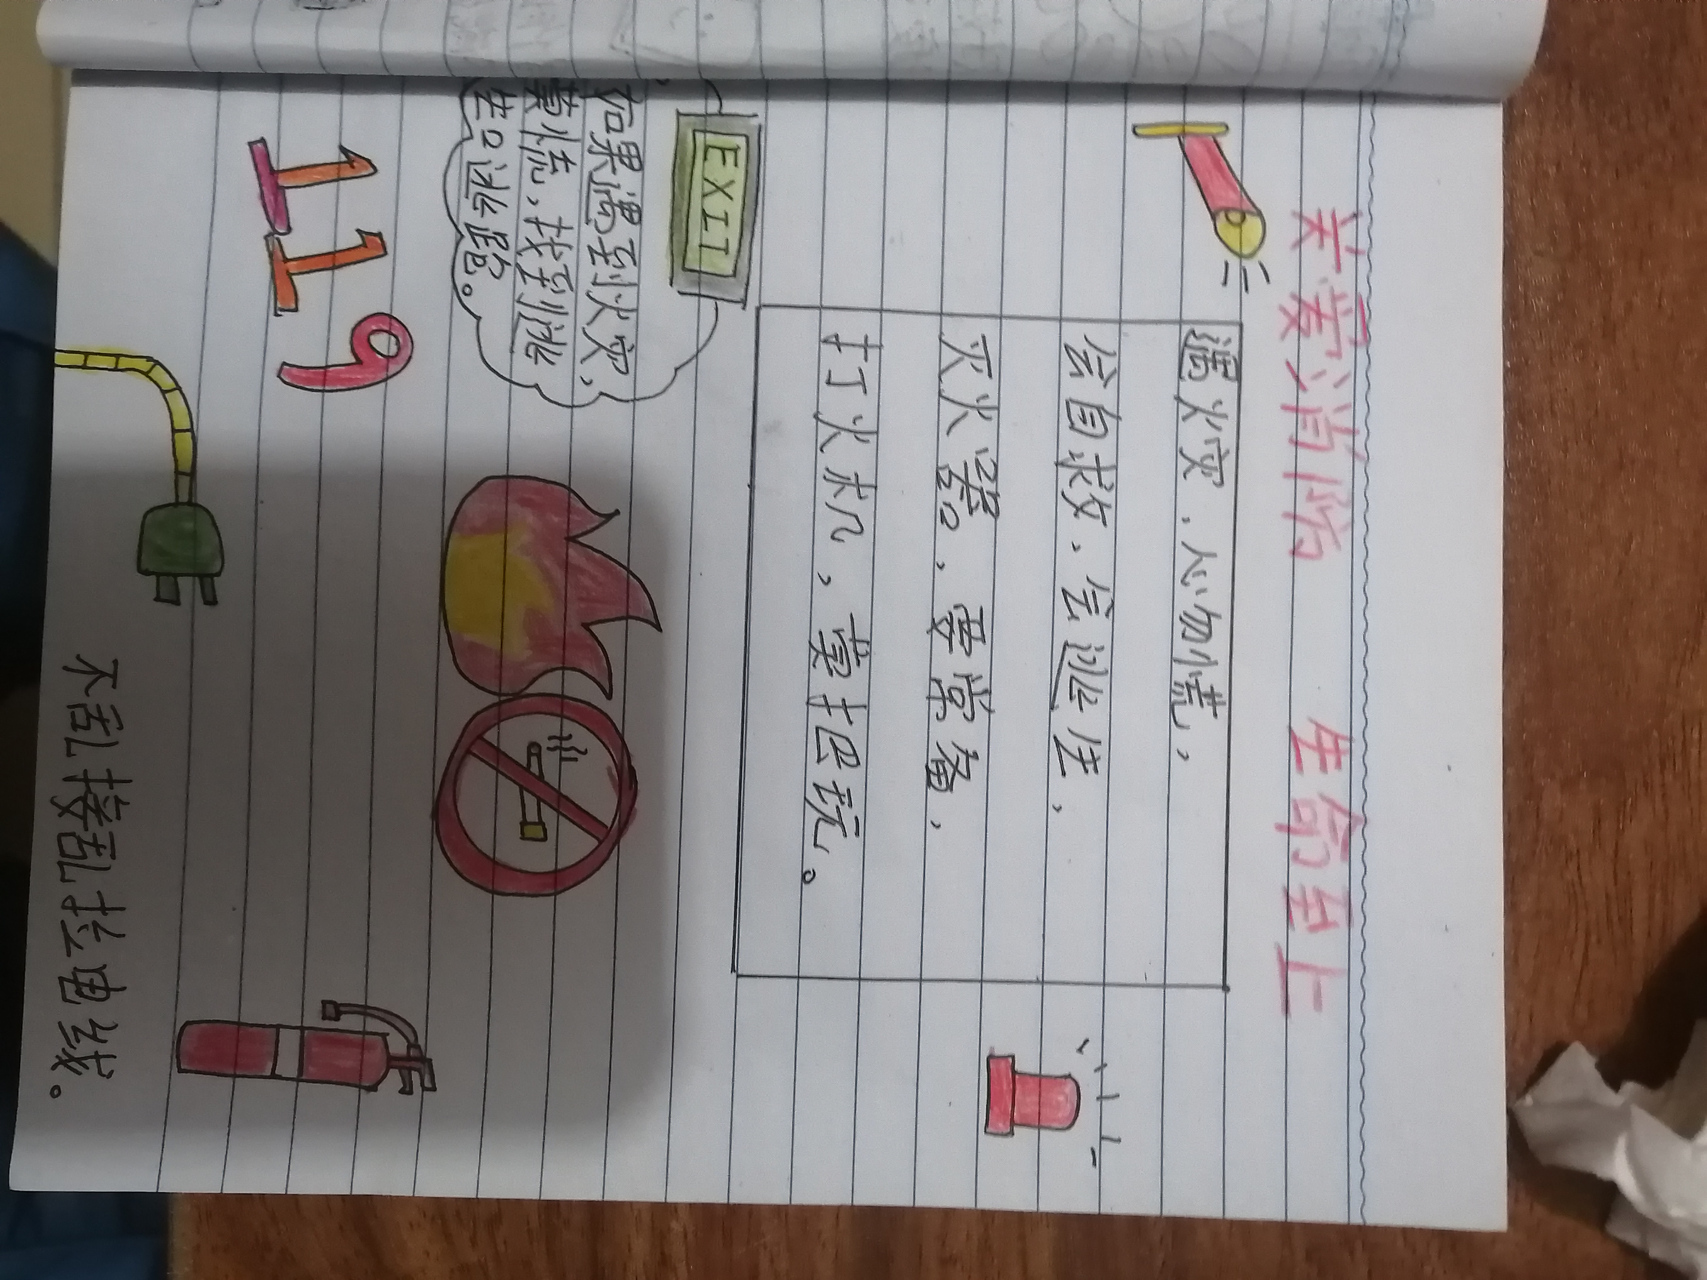 关爱消防 生命至上
遇火灾,心勿慌,
会自救,会逃生,
灭火器,要常备,
打火机,莫把玩。
EXIT
如果遇到火灾,
莫慌,找到逃
生口逃跑。
119
不乱接乱拉电线。